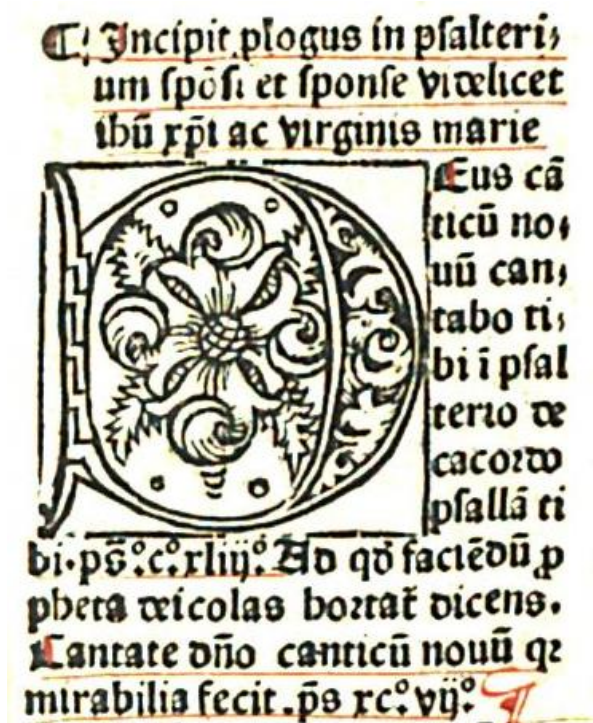 ¶ Incipit ꝓlogus in pſalteri⸗
um ſpōſi et ſponſe videlicet
ihū xp̄i ac virginis marie
DEus cā
ticū no⸗
uū can⸗
tabo ti⸗
bi ī pſal
terio de
cacordo
pſallā ti
bi. pš.º c.º xliij.º Ad qđ faciēdū ꝓ
pheta deicolas hortat᷑ dicens.
Cantate dn̄o canticū nouū qꝛ
mirabilia fecit. pš xc.º vij.º ¶